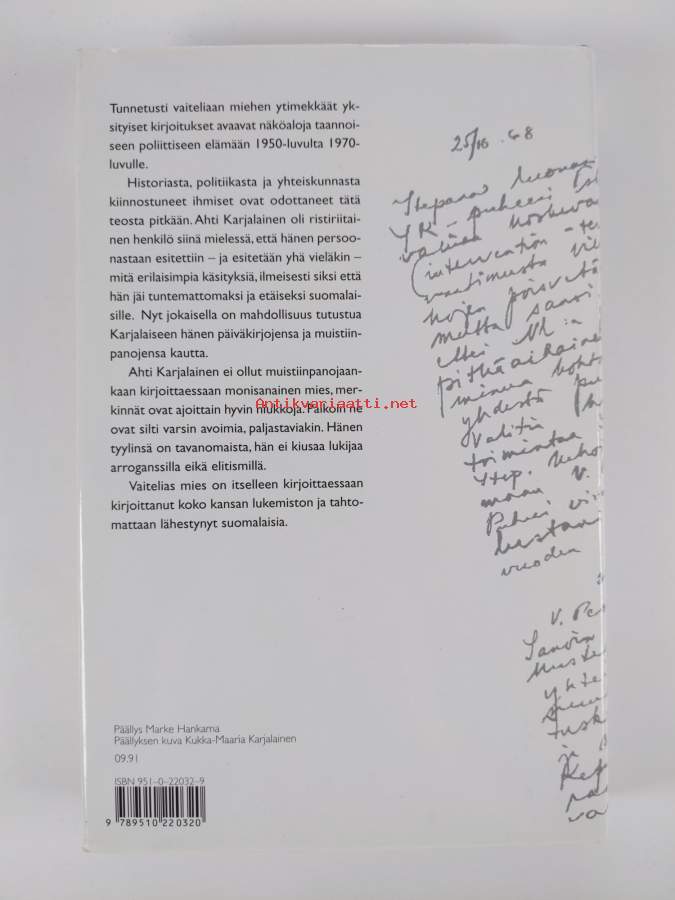 Tunnetusti vaiteliaan miehen ytimekkäät yk-
sityiset kirjoitukset avaavat näköaloja taannoi-
seen poliittiseen elämään 1950-luvulta 1970-
luvulle.
Historiasta, politiikasta ja yhteiskunnasta
kiinnostuneet ihmiset ovat odottaneet tätä
teosta pitkään. Ahti Karjalainen oli ristiriitai-
nen henkilö siinä mielessä, että hänen persoo-
nastaan esitettiin – ja esitetään yhä vieläkin –
mitä erilaisimpia käsityksiä, ilmeisesti siksi että
hän jäi tuntemattomaksi ja etäiseksi suomalai-
sille. Nyt jokaisella on mahdollisuus tutustua
Karjalaiseen hänen päiväkirjojensa ja muistiin-
panojensa kautta.
Ahti Karjalainen ei ollut muistiinpanojaan-
kaan kirjoittaessaan monisanainen mies, mer-
kinnät ovat ajoittain hyvin niukkoja. Paikoin ne
ovat silti varsin avoimia, paljastaviakin. Hänen
tyylinsä on tavanomaista, hän ei kiusaa lukijaa
arroganssilla eikä elitismillä.
Vaitelias mies on itselleen kirjoittaessaan
kirjoittanut koko kansan lukemiston ja tahto-
mattaan lähestynyt suomalaisia.
Antikvariaatti.net
Päällys Marke Hankama
Päällyksen kuva Kukka-Maaria Karjalainen
09.91
ISBN 951-0-22032-9
9 789510 220320
YK-puheeni
(intervention
mutta sanoi
ettei
pitkäaikaine
minua
yhdestä
toimintaa
Step.
maan V.
Puheeni
vuoden
Sanoin
yhte
tusk
ja